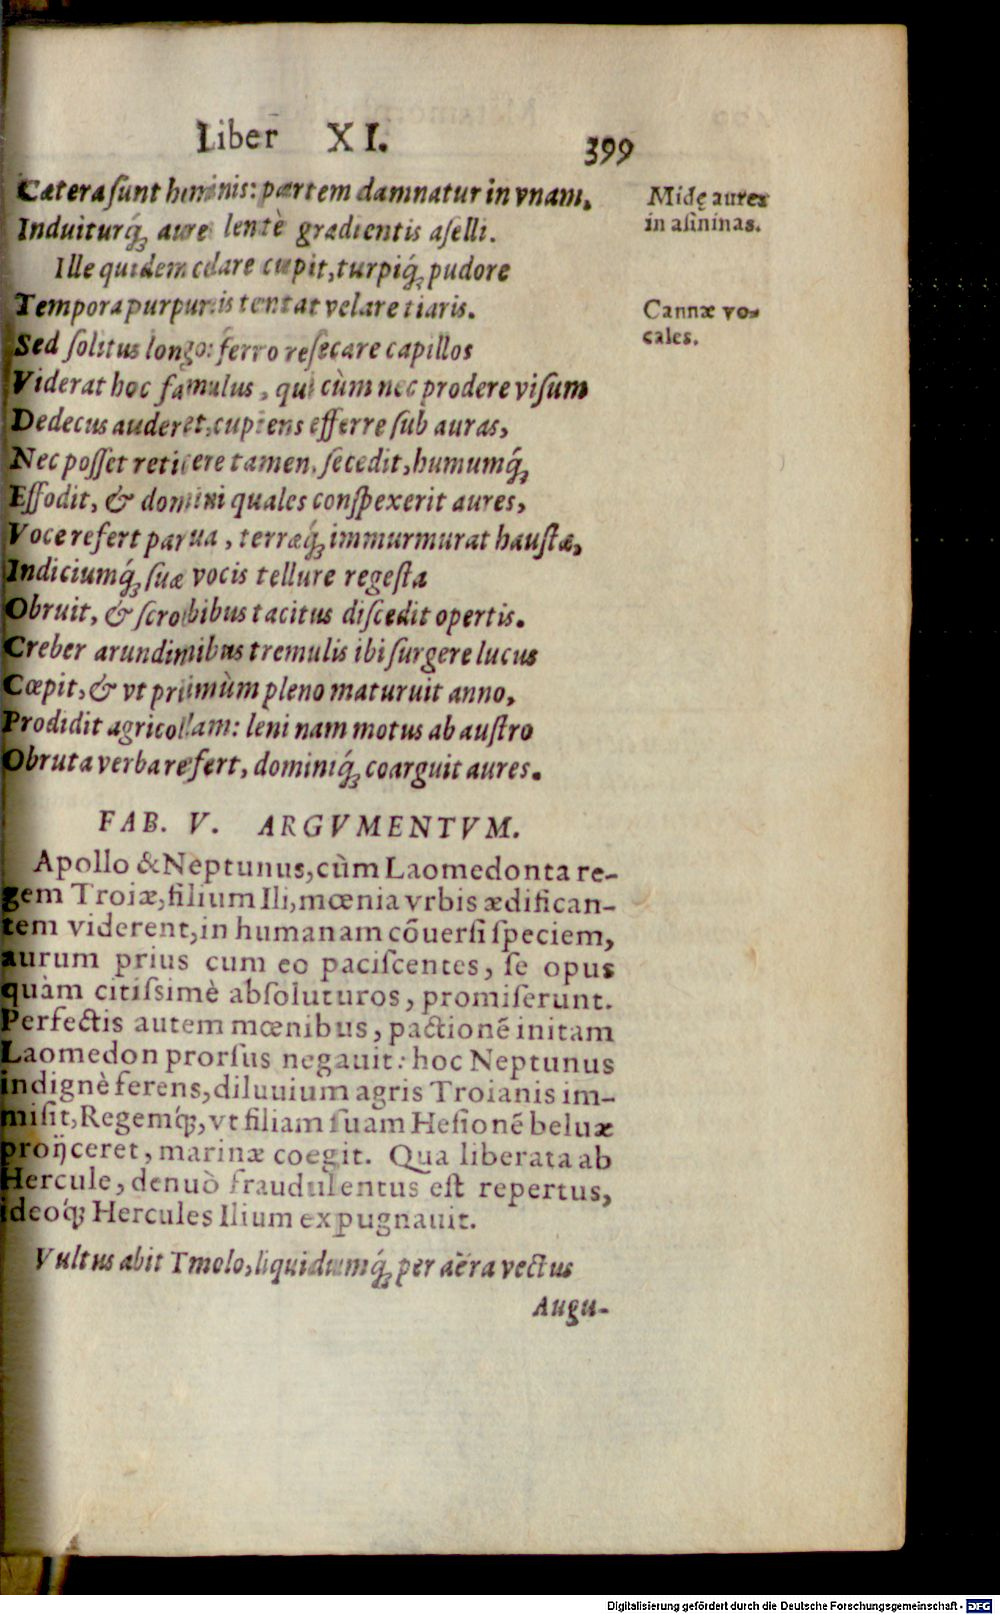 Liber XI. 399
Cætera sunt hominis: partem damnatur in vnam,
Induiturq́; aures lentè gradientis aselli.
Ille quidem celare cupit, turpiq́; pudore
Tempora purpureis tentat velare tiaris.
Sed solitus longos ferro resecare capillos
Viderat hoc famulus, qui cùm nec prodere visum
Dedecus auderet, cupiens efferre sub auras,
Nec posset reticere tamen, secedit, humumq́;
Effodit, & domini quales conspexerit aures,
Voce refert parua, terræq́; immurmurat haustæ,
Indiciumq́; suæ vocis tellure regesta
Obruit, & scrobibus tacitus discedit opertis.
Creber arundinibus tremulis ibi surgere lucus
Cœpit, & vt primùm pleno maturuit anno,
Prodidit agricolam: leni nam motus ab austro
Obruta verba refert, dominiq́; coarguit aures.
Midę aures
in asininas.
Cannæ vo-
cales.
FAB. V. ARGVMENTVM.
Apollo & Neptunus, cùm Laomedonta re-
gem Troiæ, filium Ili, mœnia vrbis ædifican-
tem viderent, in humanam cōuersi speciem,
aurum prius cum eo paciscentes, se opus
quàm citissimè absoluturos, promiserunt.
Perfectis autem mœnibus, pactionē initam
Laomedon prorsus negauit: hoc Neptunus
indignè ferens, diluuium agris Troianis im-
misit, Regemq́;, vt filiam suam Hesionē beluæ
proijceret, marinæ coegit. Qua liberata ab
Hercule, denuò fraudulentus est repertus,
ideoq́; Hercules Ilium expugnauit.
Vultus abit Tmolo, liquidumq́; per aëra vectus
Augu-
Digitalisierung gefördert durch die Deutsche Forschungsgemeinschaft - DFG